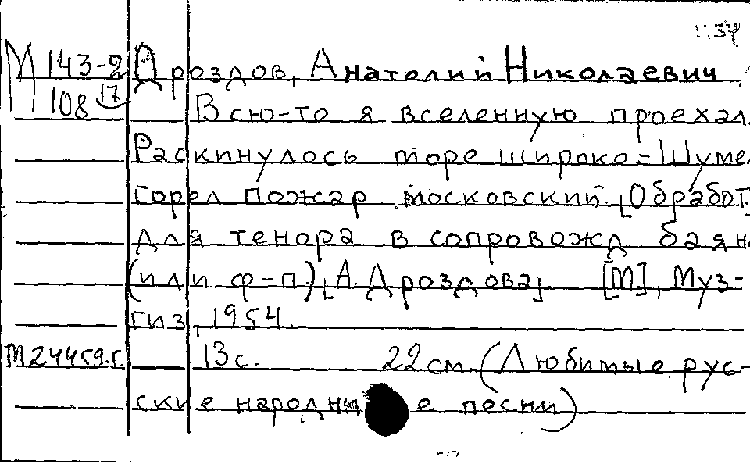 1137
М 143-8 Дроздов, Анатолий Николаевич.
108 (17) Всю-то я вселенную проехал.
Раскинулось море широко=Шуме
горел пожар московский [Обработ.
для тенора в сопровожд баян
(или ф-п) А. Дроздова]. [М], Муз-
гиз, 1954.
М24459.г. 13с. 22см. (Любимые рус-
ские народны е песни)